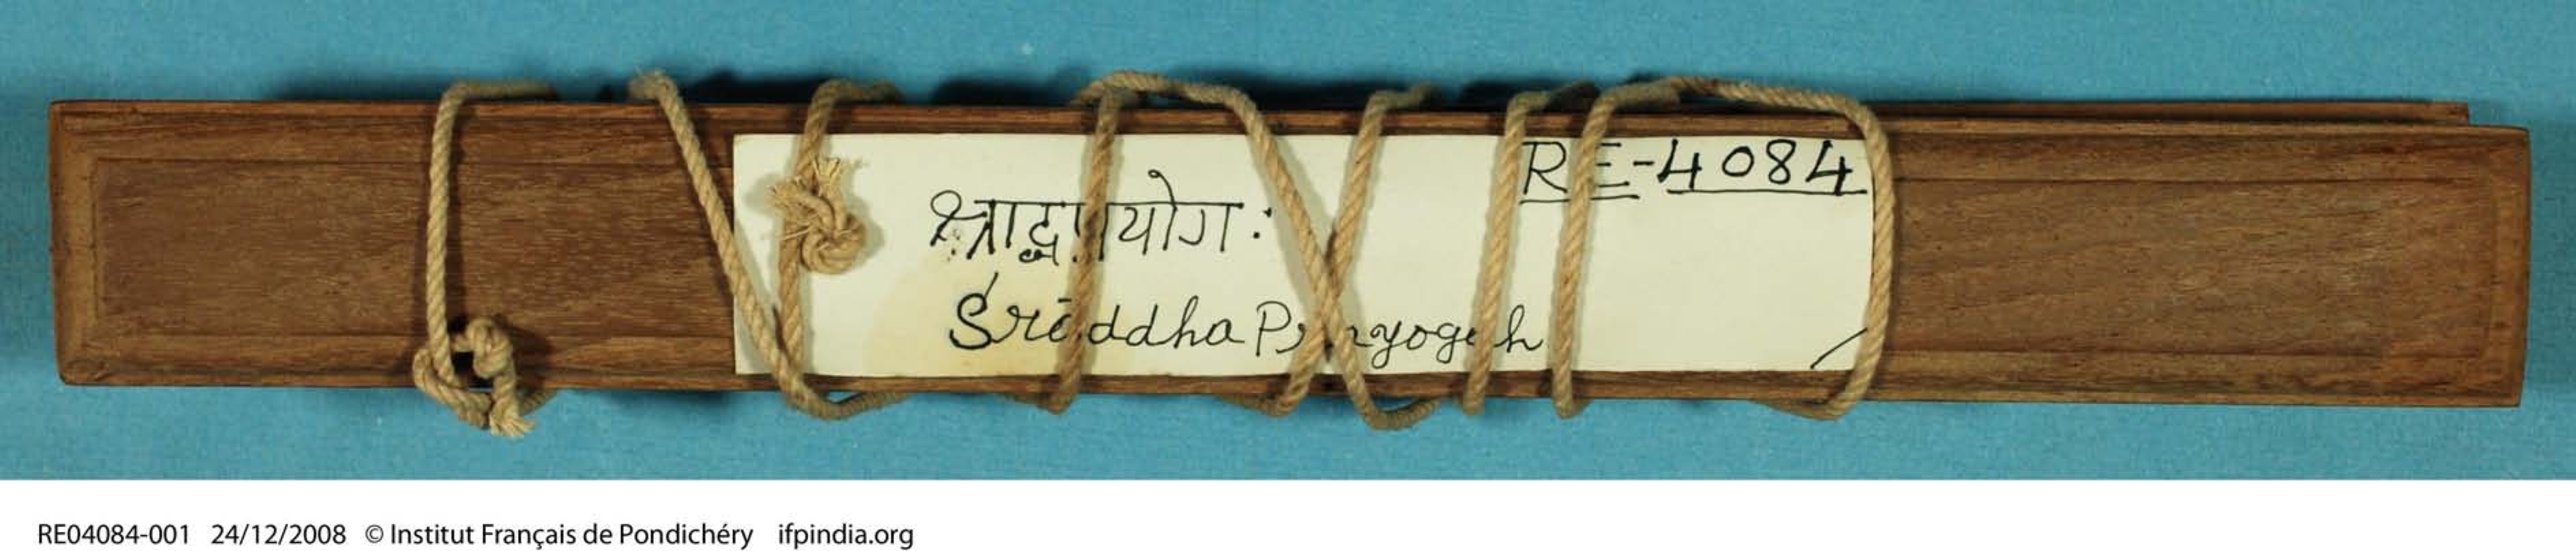 RE-4084
श्राद्धप्रयोगः
Śrāddha Prayogah
RE04084-001 24/12/2008 © Institut Français de Pondichéry ifpindia.org